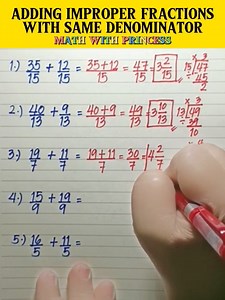 ADDING IMPROPER FRACTIONS
WITH SAME DENOMINATOR
MATH WITH PRINCESS
1.) 35/15 + 12/15 = 35+12/15 = 47/15 = 3 2/15
x 3
15 √47
- 45
2
2.) 40/13 + 9/13 = 40+9/13 = 49/13 = 3 10/13
x 3
13 √49
- 39
10
3.) 19/7 + 11/7 = 19+11/7 = 30/7 = 4 2/7
4.) 15/9 + 19/9 =
5.) 16/5 + 11/5 =